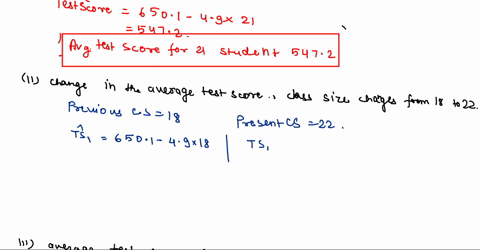 TestScore = 650.1 - 4.9 x 21
= 547.2.
Avg test score for 21 student 547.2
(II) change in the average test score., class size chages from 18 to 22.
Previous CS = 18
Present CS = 22.
T̂S₁ = 650.1 - 4.9 x 18
TS₁
III) average